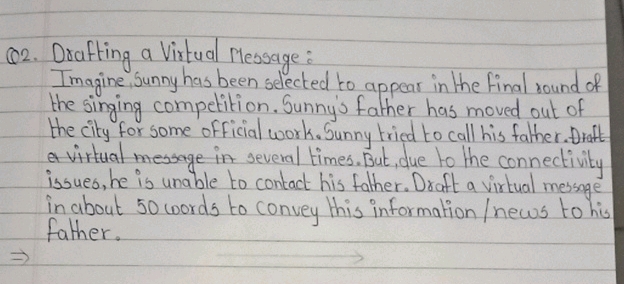 Q2. Drafting a Virtual Message:
Imagine, Sunny has been selected to appear in the final round of
the singing competition. Sunny's father has moved out of
the city for some official work. Sunny tried to call his father. Draft
a virtual message in several times. But, due to the connectivity
issues, he is unable to contact his father. Draft a virtual message
in about 50 words to convey this information / news to his
father.
⇒ →